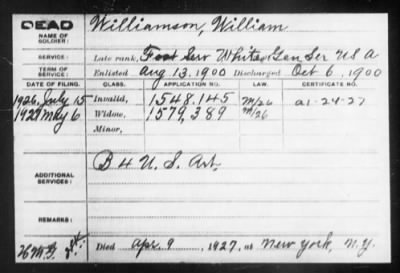 DEAD
NAME OF SOLDIER:
Williamson, William
SERVICE:
Late rank, Post Serv White Gen Ser U S A
TERM OF SERVICE:
Enlisted Aug 13, 1900 Discharged Oct 6, 1900
DATE OF FILING. CLASS. APPLICATION NO. LAW. CERTIFICATE NO.
1926, July 15 Invalid, 1548,145 M/26 a1-24-27
1927 May 6 Widow, 1579,389 m/26
Minor,
ADDITIONAL SERVICES:
B 4 U. S. Art.
REMARKS:
Died Apr. 9, 1927, at New York, N.Y.